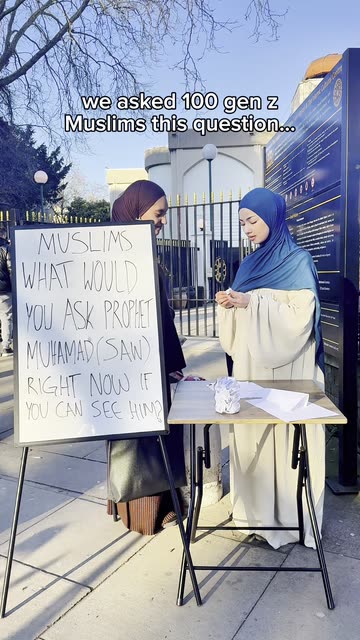 we asked 100 gen z
Muslims this question...
MUSLIMS
WHAT WOULD
YOU ASK PROPHET
MUHAMAD (SAW)
RIGHT NOW IF
YOU CAN SEE HIM?